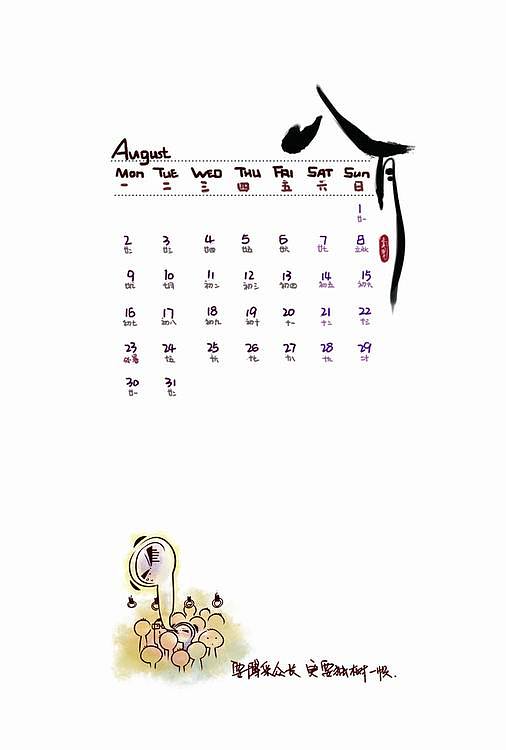 八月
August
Mon TUE WED THU FRI SAT Sun
一 二 三 四 五 六 日
1
廿一
2 3 4 5 6 7 8
廿二 廿三 廿四 廿五 廿六 廿七 立秋
9 10 11 12 13 14 15
廿九 七月 初二 初三 初四 初五 初六
16 17 18 19 20 21 22
初七 初八 初九 初十 十一 十二 十三
23 24 25 26 27 28 29
处暑 十五 十六 十七 十八 十九 二十
30 31
廿一 廿二
要博采众长 更要独树一帜.